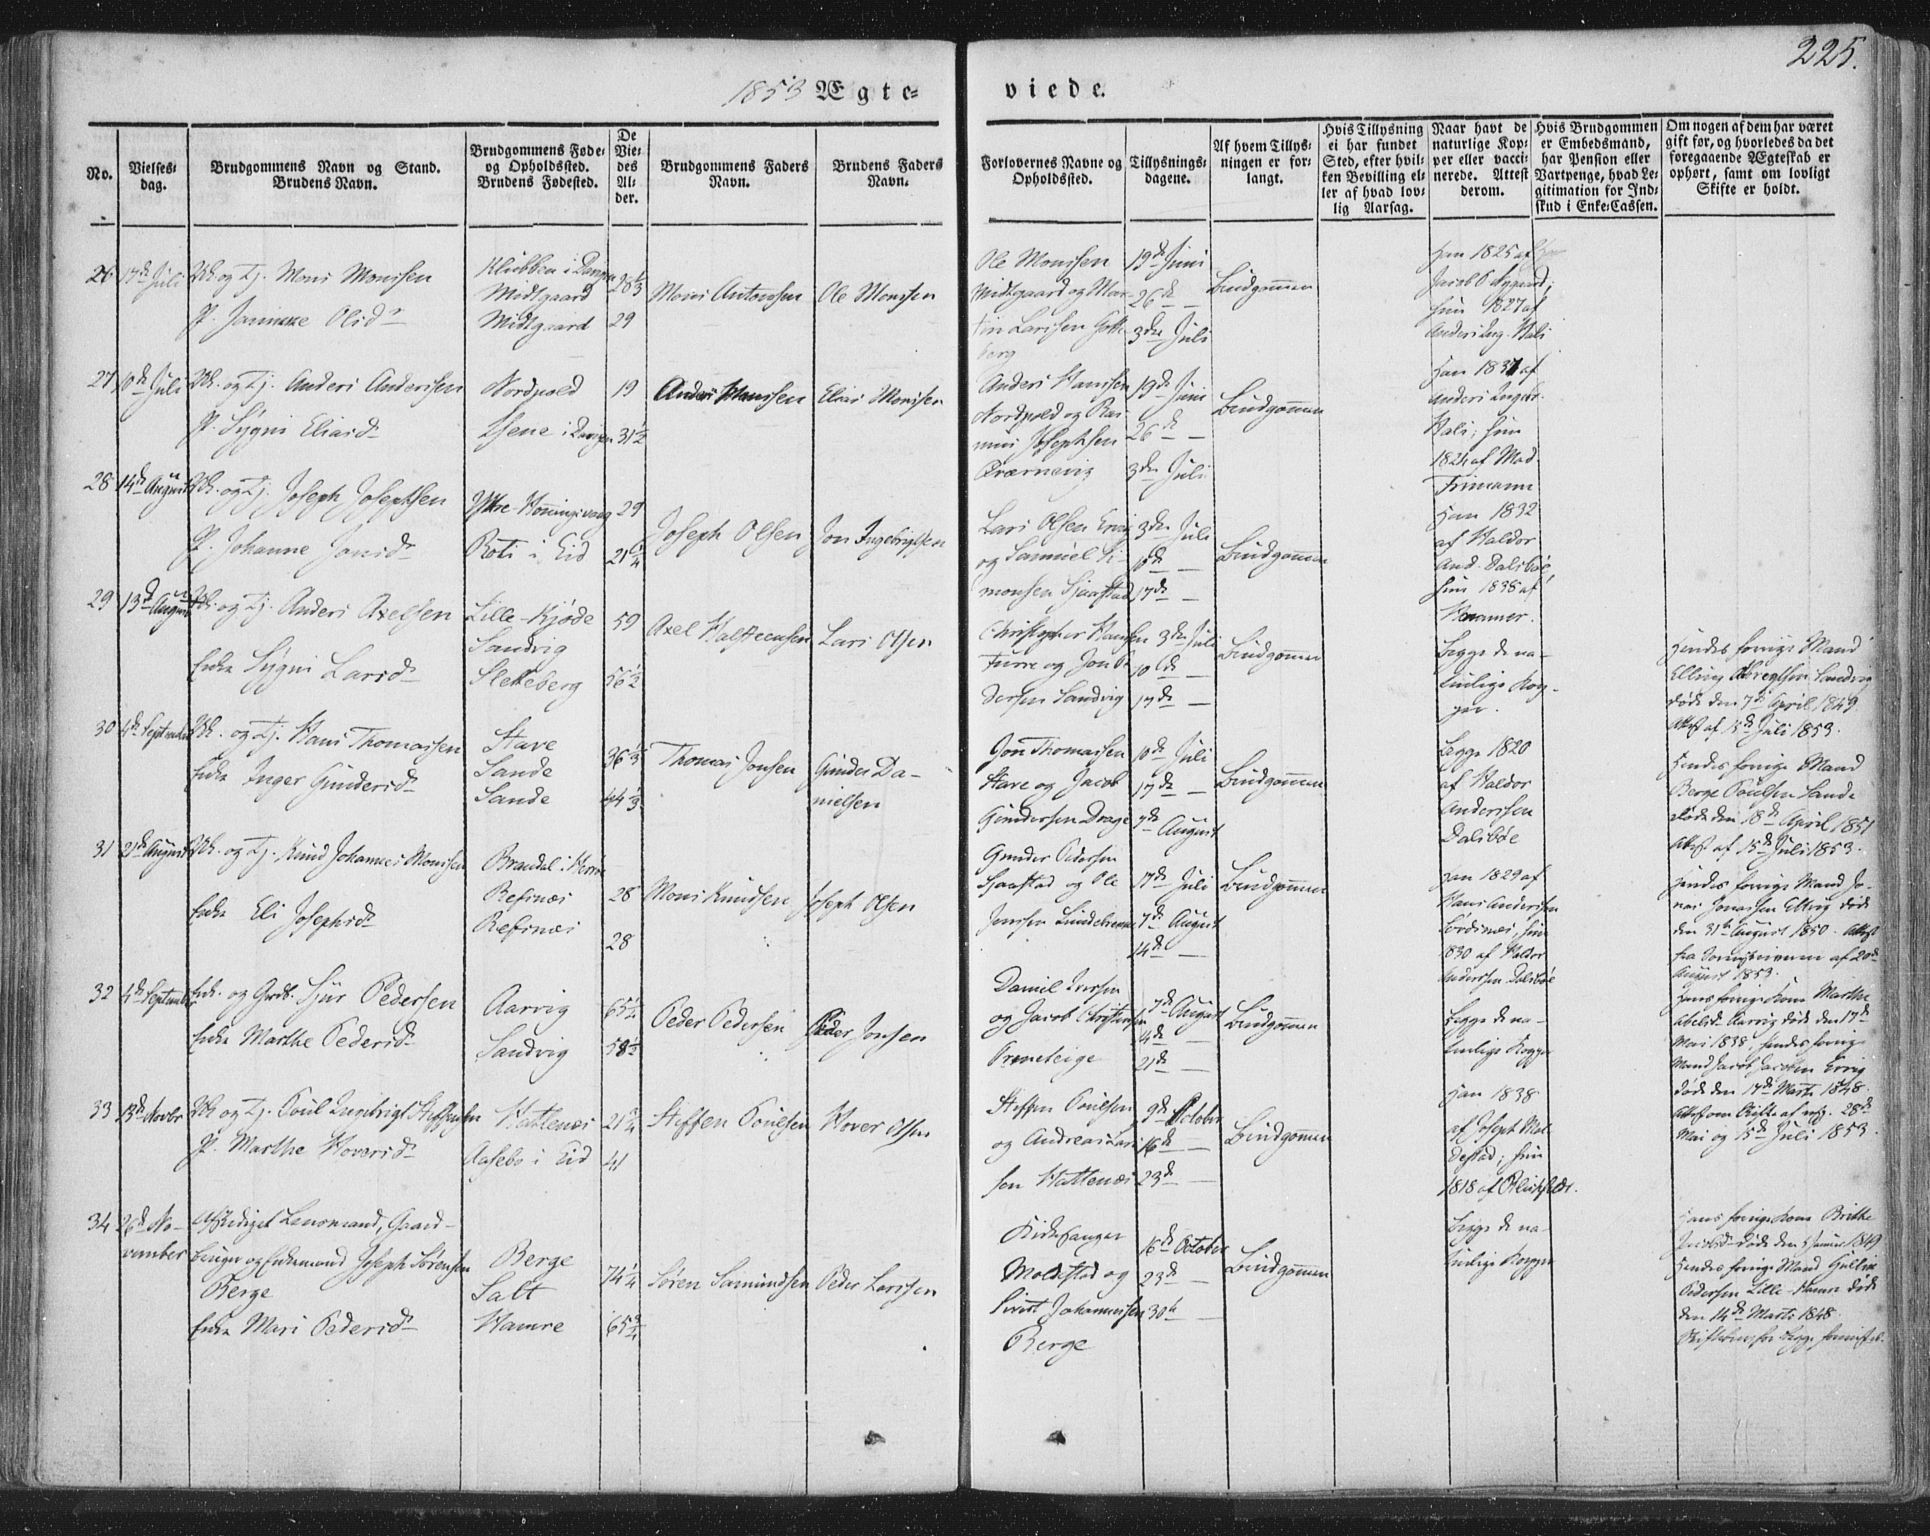 225.
1853 Ægte-
viede.
No.
Vielses-
dag.
Brudgommens Navn og Stand.
Brudens Navn.
Brudgommens Føde-
og Opholdssted.
Brudens Fødested.
De
Vie-
des
Al-
der.
Brudgommens Faders
Navn.
Brudens Faders
Navn.
Forlovernes Navne og
Opholdssted.
Tillysnings-
dagene.
Af hvem Tillys-
ningen er for-
langt.
Hvis Tillysning
ei har fundet
Sted, efter hvil-
ken Bevilling el-
ler af hvad lov-
lig Aarsag.
Naar havt de
naturlige Kop-
per eller vacci-
nerede. Attest
derom.
Hvis Brudgommen
er Embedsmand,
har Pension eller
Vartpenge, hvad Le-
gitimation for Ind-
skud i Enke-Cassen.
Om nogen af dem har været
gift før, og hvorledes da det
foregaaende Ægteskab er
ophørt, samt om lovligt
Skifte er holdt.
26 17de Juli
og Tj. Mons Monssen
P. Olsdr
Klubben i
Midtgaard
Midtgaard
28 1/3
29
Mons Antonssen
Ole Monssen
Ole Monssen
Midtgaard og Mar-
tin Larssen
berg
19de Juni
26de —
3die Juli
Brudgommen
Han 1825 af
Jacob O
hun 1827 af
27 10de Juli
og Tj. Anders Anderssen
P. Sygni Eliasdr
Nordpold
19
31 1/2
Anders Hanssen
Elias Monssen
Anders Hanssen
Nordpold og Ras-
mus Josephsen
19de Juni
26de —
3die Juli
Brudgommen
Han 1837 af
Anders
hun
1824 af Mad.
Frimann
28 14de August
og Tj. Joseph Josephsen
P. Johanne Jonsdr
Ytre Honningsvaag
Rots i Eid
29
21 1/4
Joseph Olsen
Jon Ingebrigtsen
Lars Olsen Ervig
og Samuel Si-
monsen Sjaastad
3die Juli
10de —
17de —
Brudgommen
Han 1832
af Haldor
And. Dalsbøe,
hun 1838 af
29 13de August
og Tj. Anders Axelsen
Enke Sygni Larsdr
Lille-Kjøde
Sandvig
Sletteberg
59
56 1/2
Axel Halsteensen
Lars Olsen
Christopher Hansen
Furre og Jon
Sandvig
3die Juli
10de
17de —
Brudgommen
Begge de na-
turlige Kop-
per.
Hendes forrige Mand
Elling Sandvig
døde den 7de April 1849
Attest af 15de Juli 1853.
30 4de September
og Tj. Hans Thomassen
Enke Inger Gundersdr
Stave
Sande
Sande
36 1/3
44 1/3
Thomas Jonsen
Gunder Da-
nielsen
Jon Thomassen
Stave og Jacob
Gundersen Drage
10de Juli
17de —
7de August
Brudgommen
Begge 1820
af Haldor
Andersen
Dalsbøe
Hendes forrige Mand
Berge Poulsen Sande
døde den 18de April 1851
Attest af 15de Juli 1853.
31 21de August
og Tj. Knud Johannes Monssen
Enke Eli Josephsdr
Brandal i Herrø
Refsnæs
Refsnæs
28
28
Mons Knudsen
Joseph Olsen
Gunder Pedersen
Sjaastad og Ole
Jenssen
17de Juli
7de August
14de —
Brudgommen
Han 1829 af
Hans Andersen
hun
1830 af Haldor
Andersen Dalsbøe
Hendes forrige Mand Jo-
nas Jonassen Ervig døde
den 31te August 1850. Attest
fra Sorenskriveren af 20de
August 1853.
32 4de September
Enkm. og Grdb. Sjur Pedersen
Enke Marthe Pedersdr
Aarvig
Sandvig
65 1/2
58 1/2
Peder Pedersen
Peder Jonsen
Daniel Iversen
og Jacob Christensen
7de August
21de —
Brudgommen
Begge de na-
turlige Kopper
Hans forrige Kone Marthe
Abelsdr Aarvig døde den 17de
Mai 1838, hendes forrige
Mand Jacob Jacobsen Ervig
døde den 17de Marts 1848.
Attest om Skifte af 28de
Mai og 15de Juli 1853.
33 13de Novbr
og Tj. Poul Ingebrigt Steffensen
P. Marthe Hoversdr
Hattenæs
Aasebø i Eid
21 3/4
41
Steffen Poulsen
Hover Olsen
Steffen Poulsen
og Andreas Lars-
sen Hattenæs
9de October
16de —
23de —
Brudgommen
Han 1838
af Joseph Mol-
destad; hun
1818 af
34 26de No-
vember
Afskediget Lensmand, Gaard-
bruger og Enkemand Joseph Sørensen
Berge
Enke Mari Pedersdr
Berge
Salt
Hamre
74 1/4
65 3/4
Søren Samundsen
Peder Larssen
Kirkesanger
Moldestad og
Sivert Johannessen
Berge
16de October
23de —
30te —
Brudgommen
Begge de na-
turlige Kopper
Hans forrige Kone Brithe
døde den 1849
Hendes forrige Mand
Pedersen Lille-Hamre døde
den 14de Marts 1848.